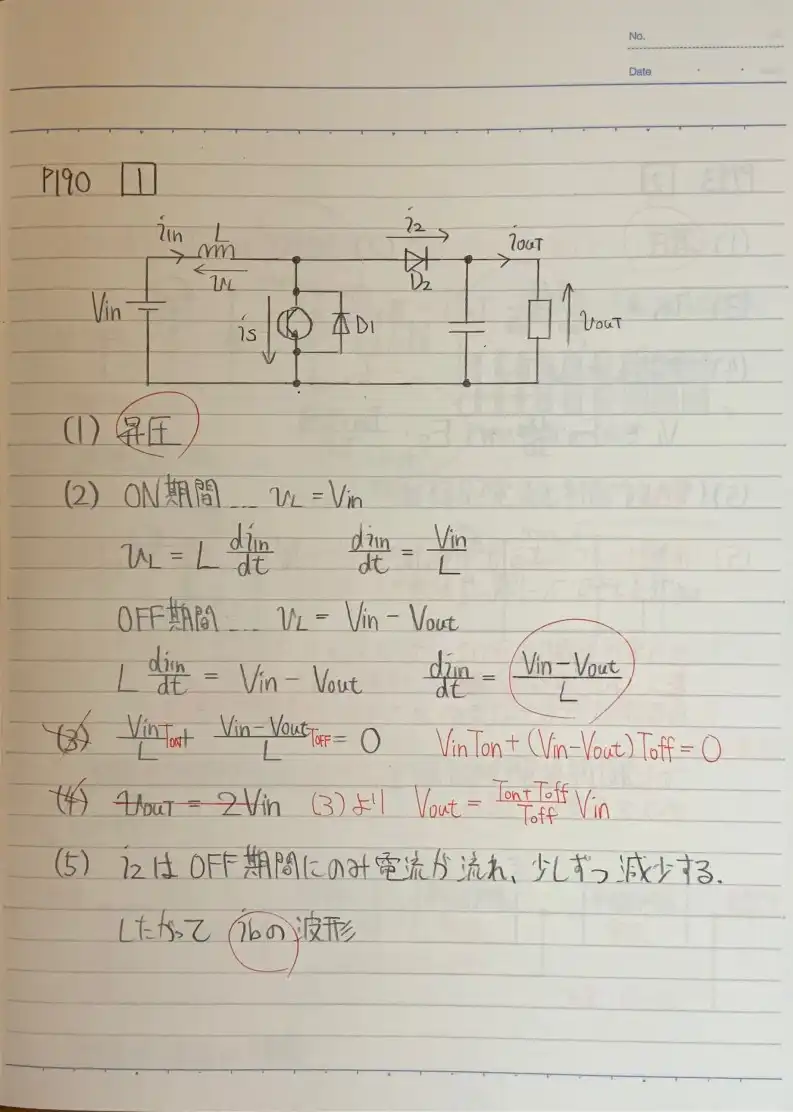 No.
Date
P190 1
iin L i2 iout
vL D2
Vin is D1 vout
(1) 昇圧
(2) ON期間 … vL = Vin
vL = L diin/dt diin/dt = Vin/L
OFF期間 … vL = Vin - Vout
L diin/dt = Vin - Vout diin/dt = (Vin-Vout)/L
(3) Vin/L Ton + (Vin-Vout)/L Toff = 0 VinTon + (Vin-Vout)Toff = 0
(4) vout = 2Vin (3)より Vout = (Ton+Toff)/Toff Vin
(5) i2はOFF期間にのみ電流が流れ、少しずつ減少する.
したがって ibの波形